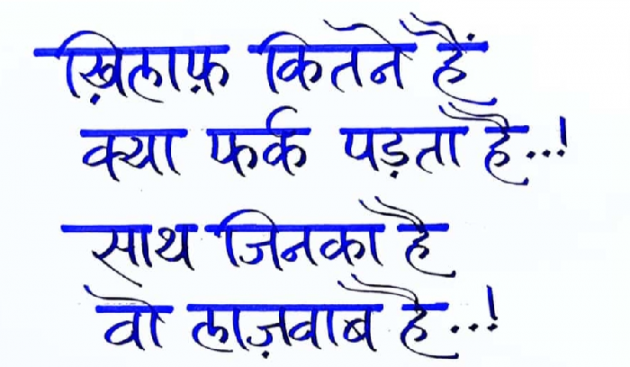 ख़िलाफ़ कितने हैं
क्या फर्क पड़ता है..!
साथ जिनका है
वो लाज़वाब है..!